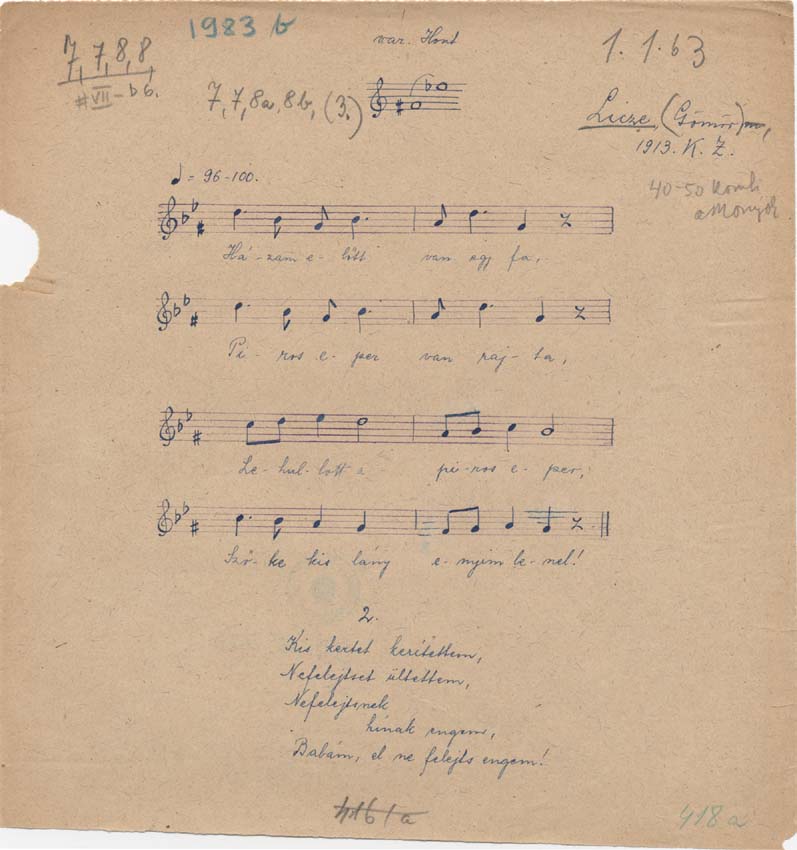 1983 b
7, 7, 8, 8
# VII - b 6.
var. Hont
1. 1. 63
7, 7, 8a, 8b, (3.)
Licze, (Gömör),
1913. K. Z.
40-50
♩ = 96-100.
Há-zam e-lőtt van egy fa,
Pi-ros e-per van raj-ta,
Le-hul-lott a pi-ros e-per,
Sző-ke kis lány e-nyim le-nel!
2.
Kis kertet kerítettem,
Nefelejtset ültettem,
Nefelejtsnek
hínak engem,
Babám, el ne felejts engem!
416/a
418a